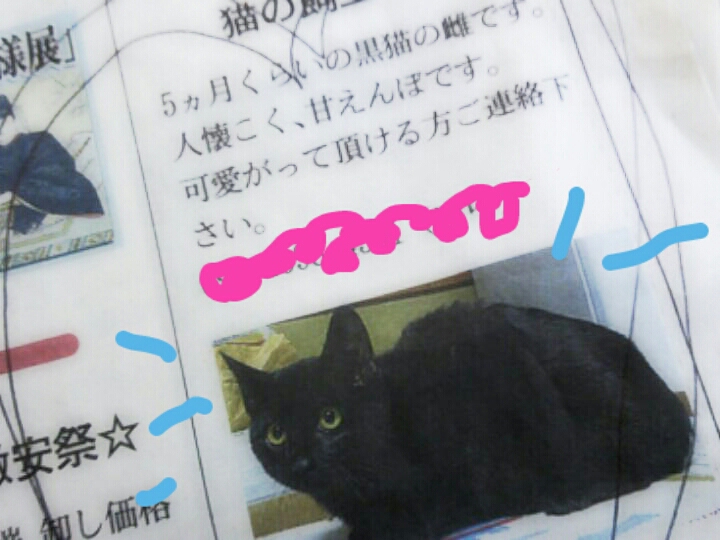 様展」
猫の飼主
5ヵ月くらいの黒猫の雌です。
人懐こく、甘えんぼです。
可愛がって頂ける方ご連絡下
さい。
激安祭☆
卸し価格